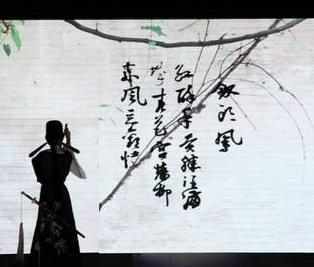 钗头凤
红酥手黄縢酒满
城春色宫墙柳
东风恶欢情